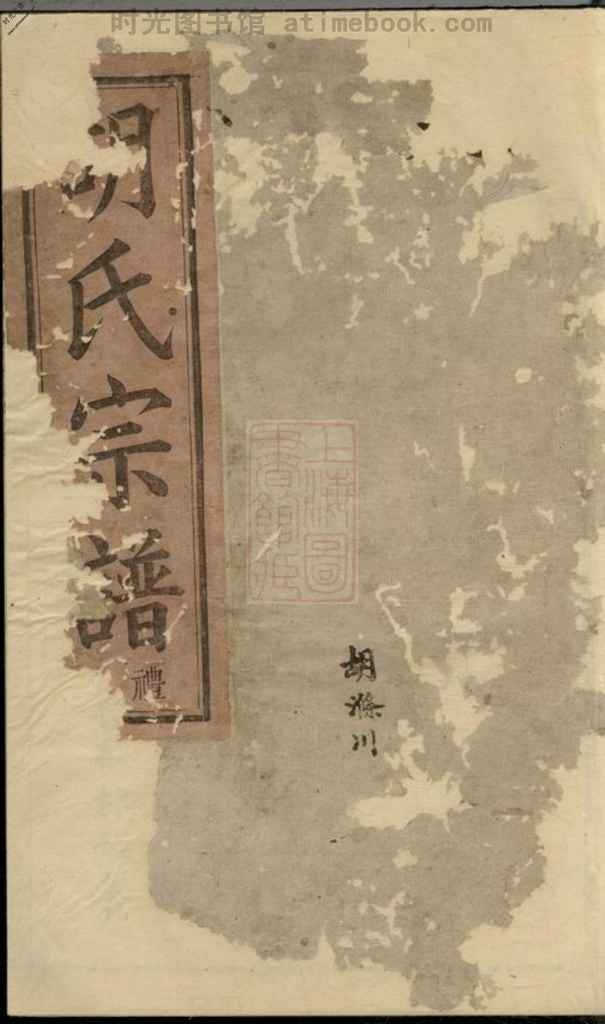 时光图书馆 - atimebook.com
胡滌川
上海圖
書館藏
胡氏宗譜
禮